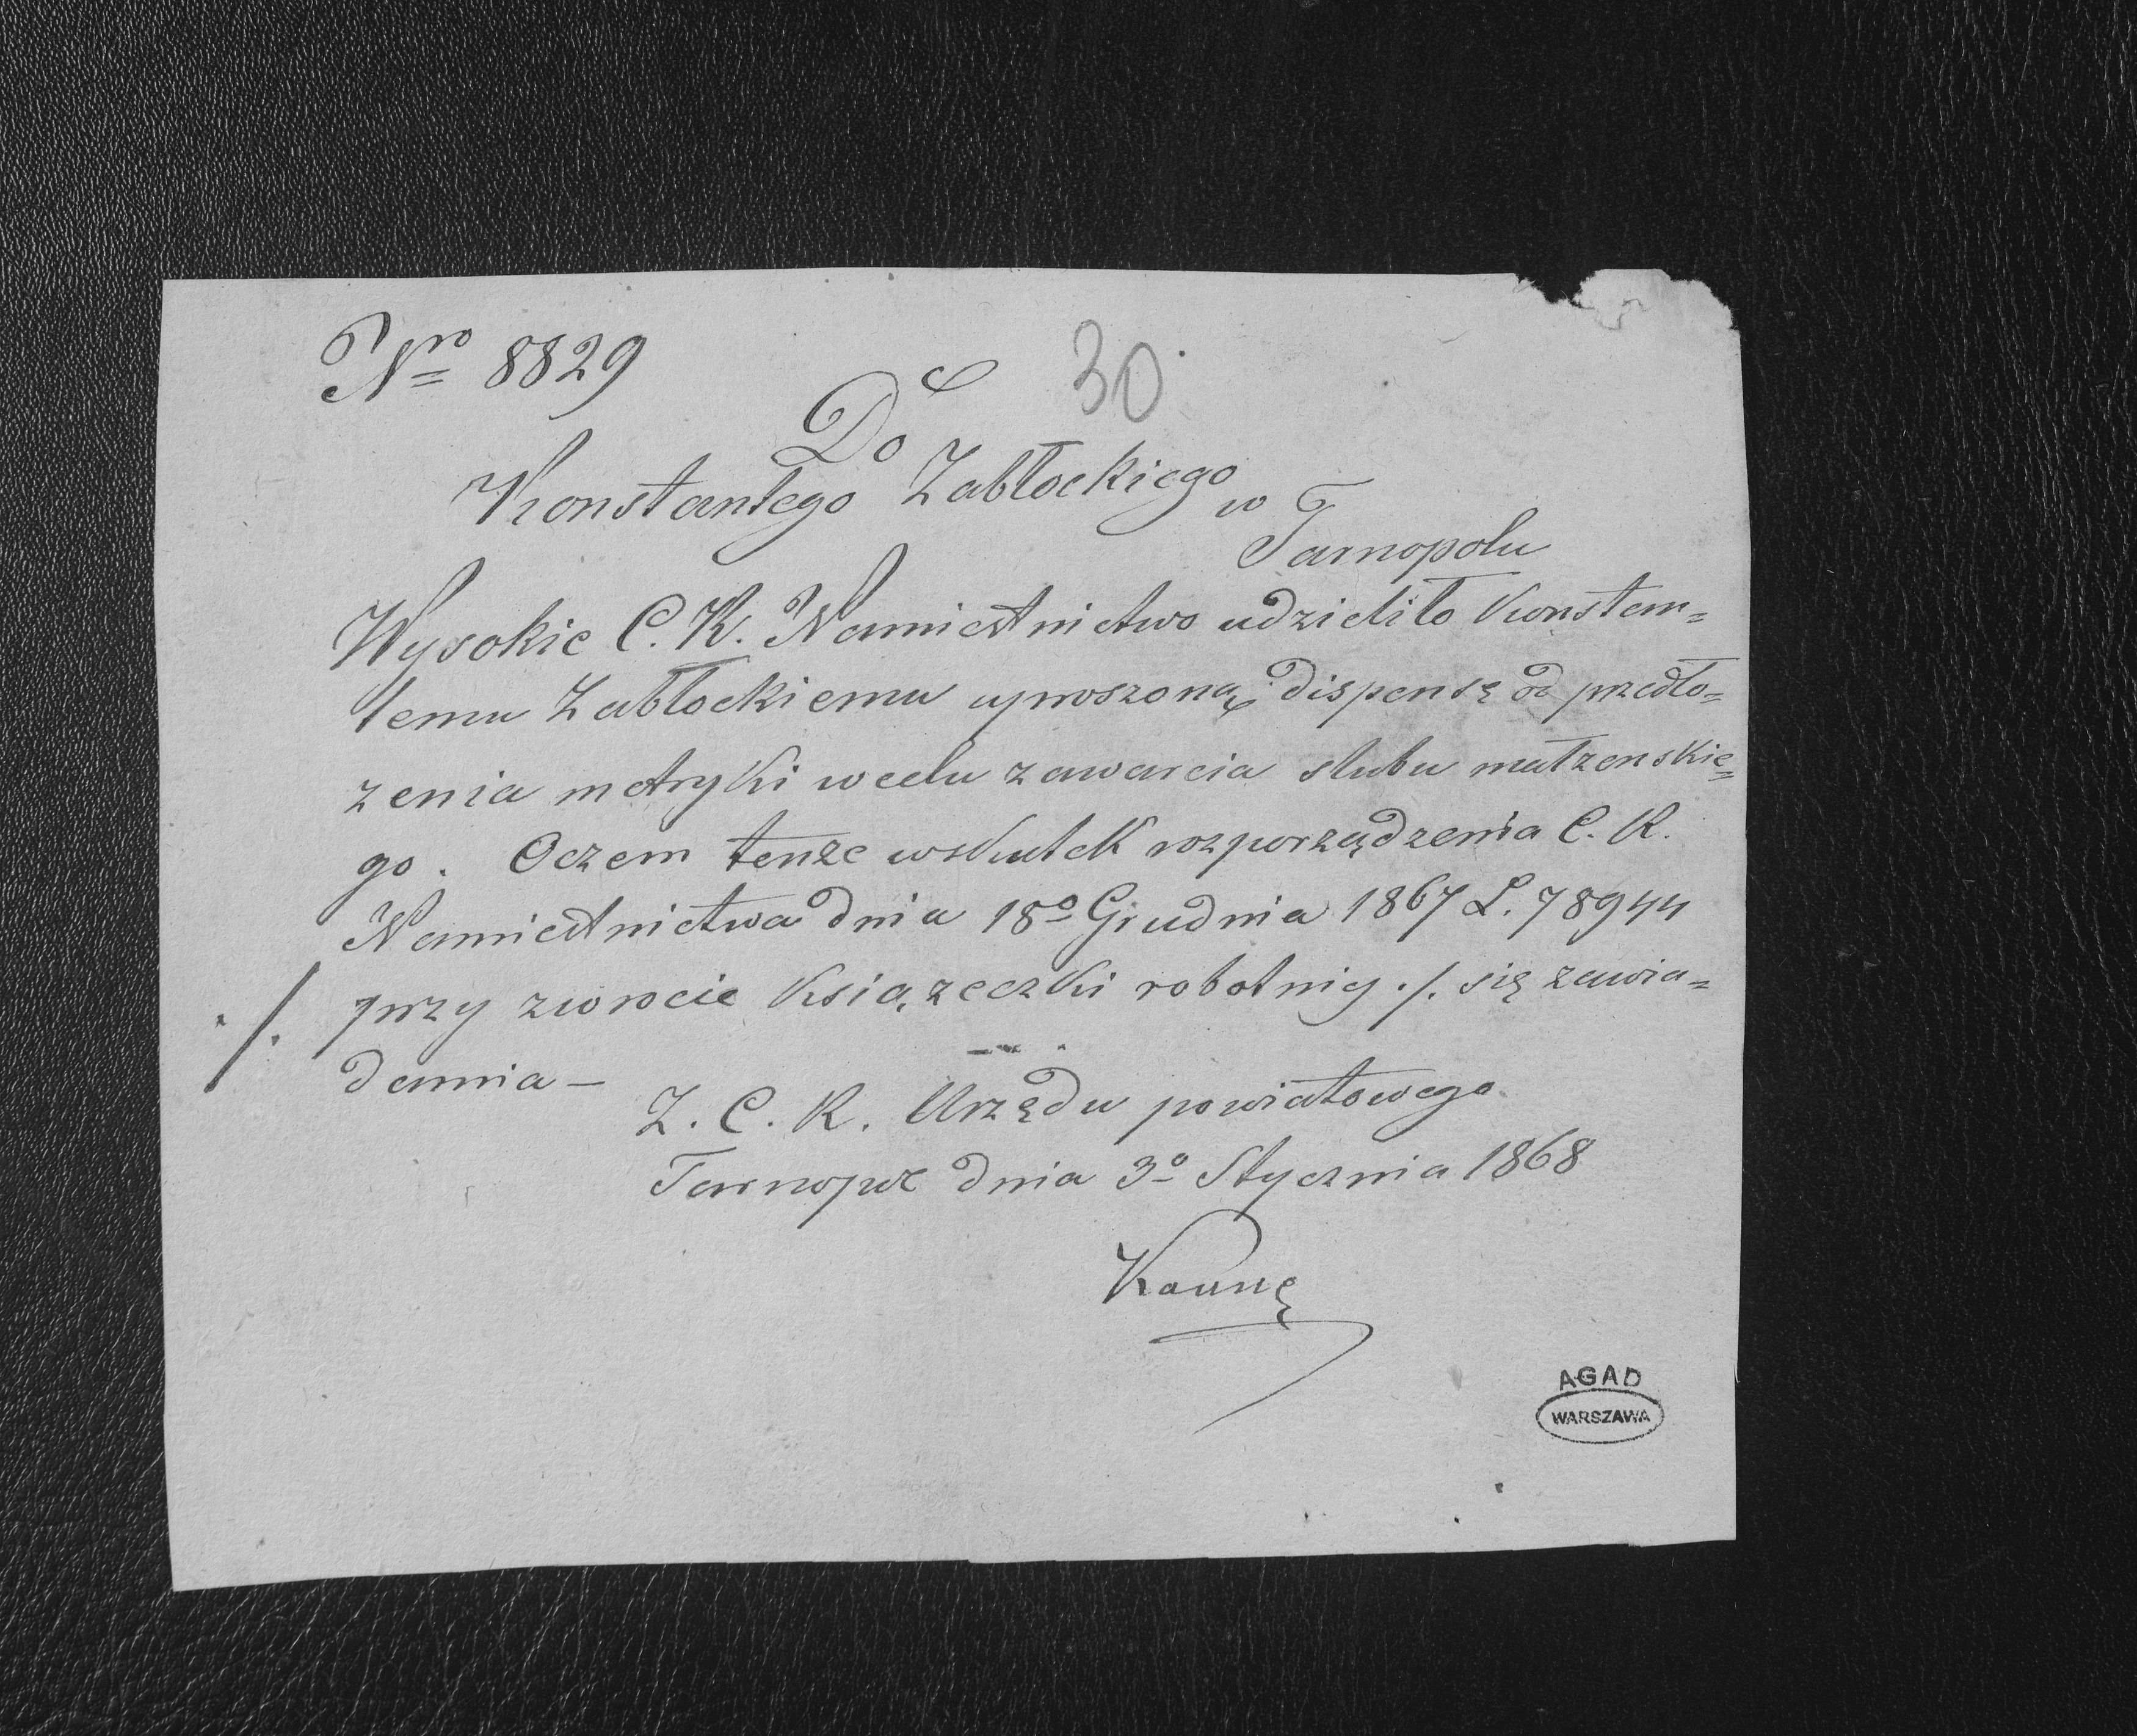 Nro 8829
30
Do
Konstantego Zabłockiego w
Tarnopolu
Wysokie C. K. Namiestnictwo udzieliło Konstan=
temu Zabłockiemu uproszoną dispensę od przedło=
zenia metryki w celu zawarcia slubu małzenskie=
go. Oczem tenże wskutek rozporządzenia C. K.
Namiestnictwa dnia 18o Grudnia 1867 L. 78944
./. przy zwrocie Ksiązeczki robotniy ./. się zawia=
damia —
Z. C. K. Urzędu powiatowego
Tarnopol dnia 3o Stycznia 1868
AGAD
WARSZAWA